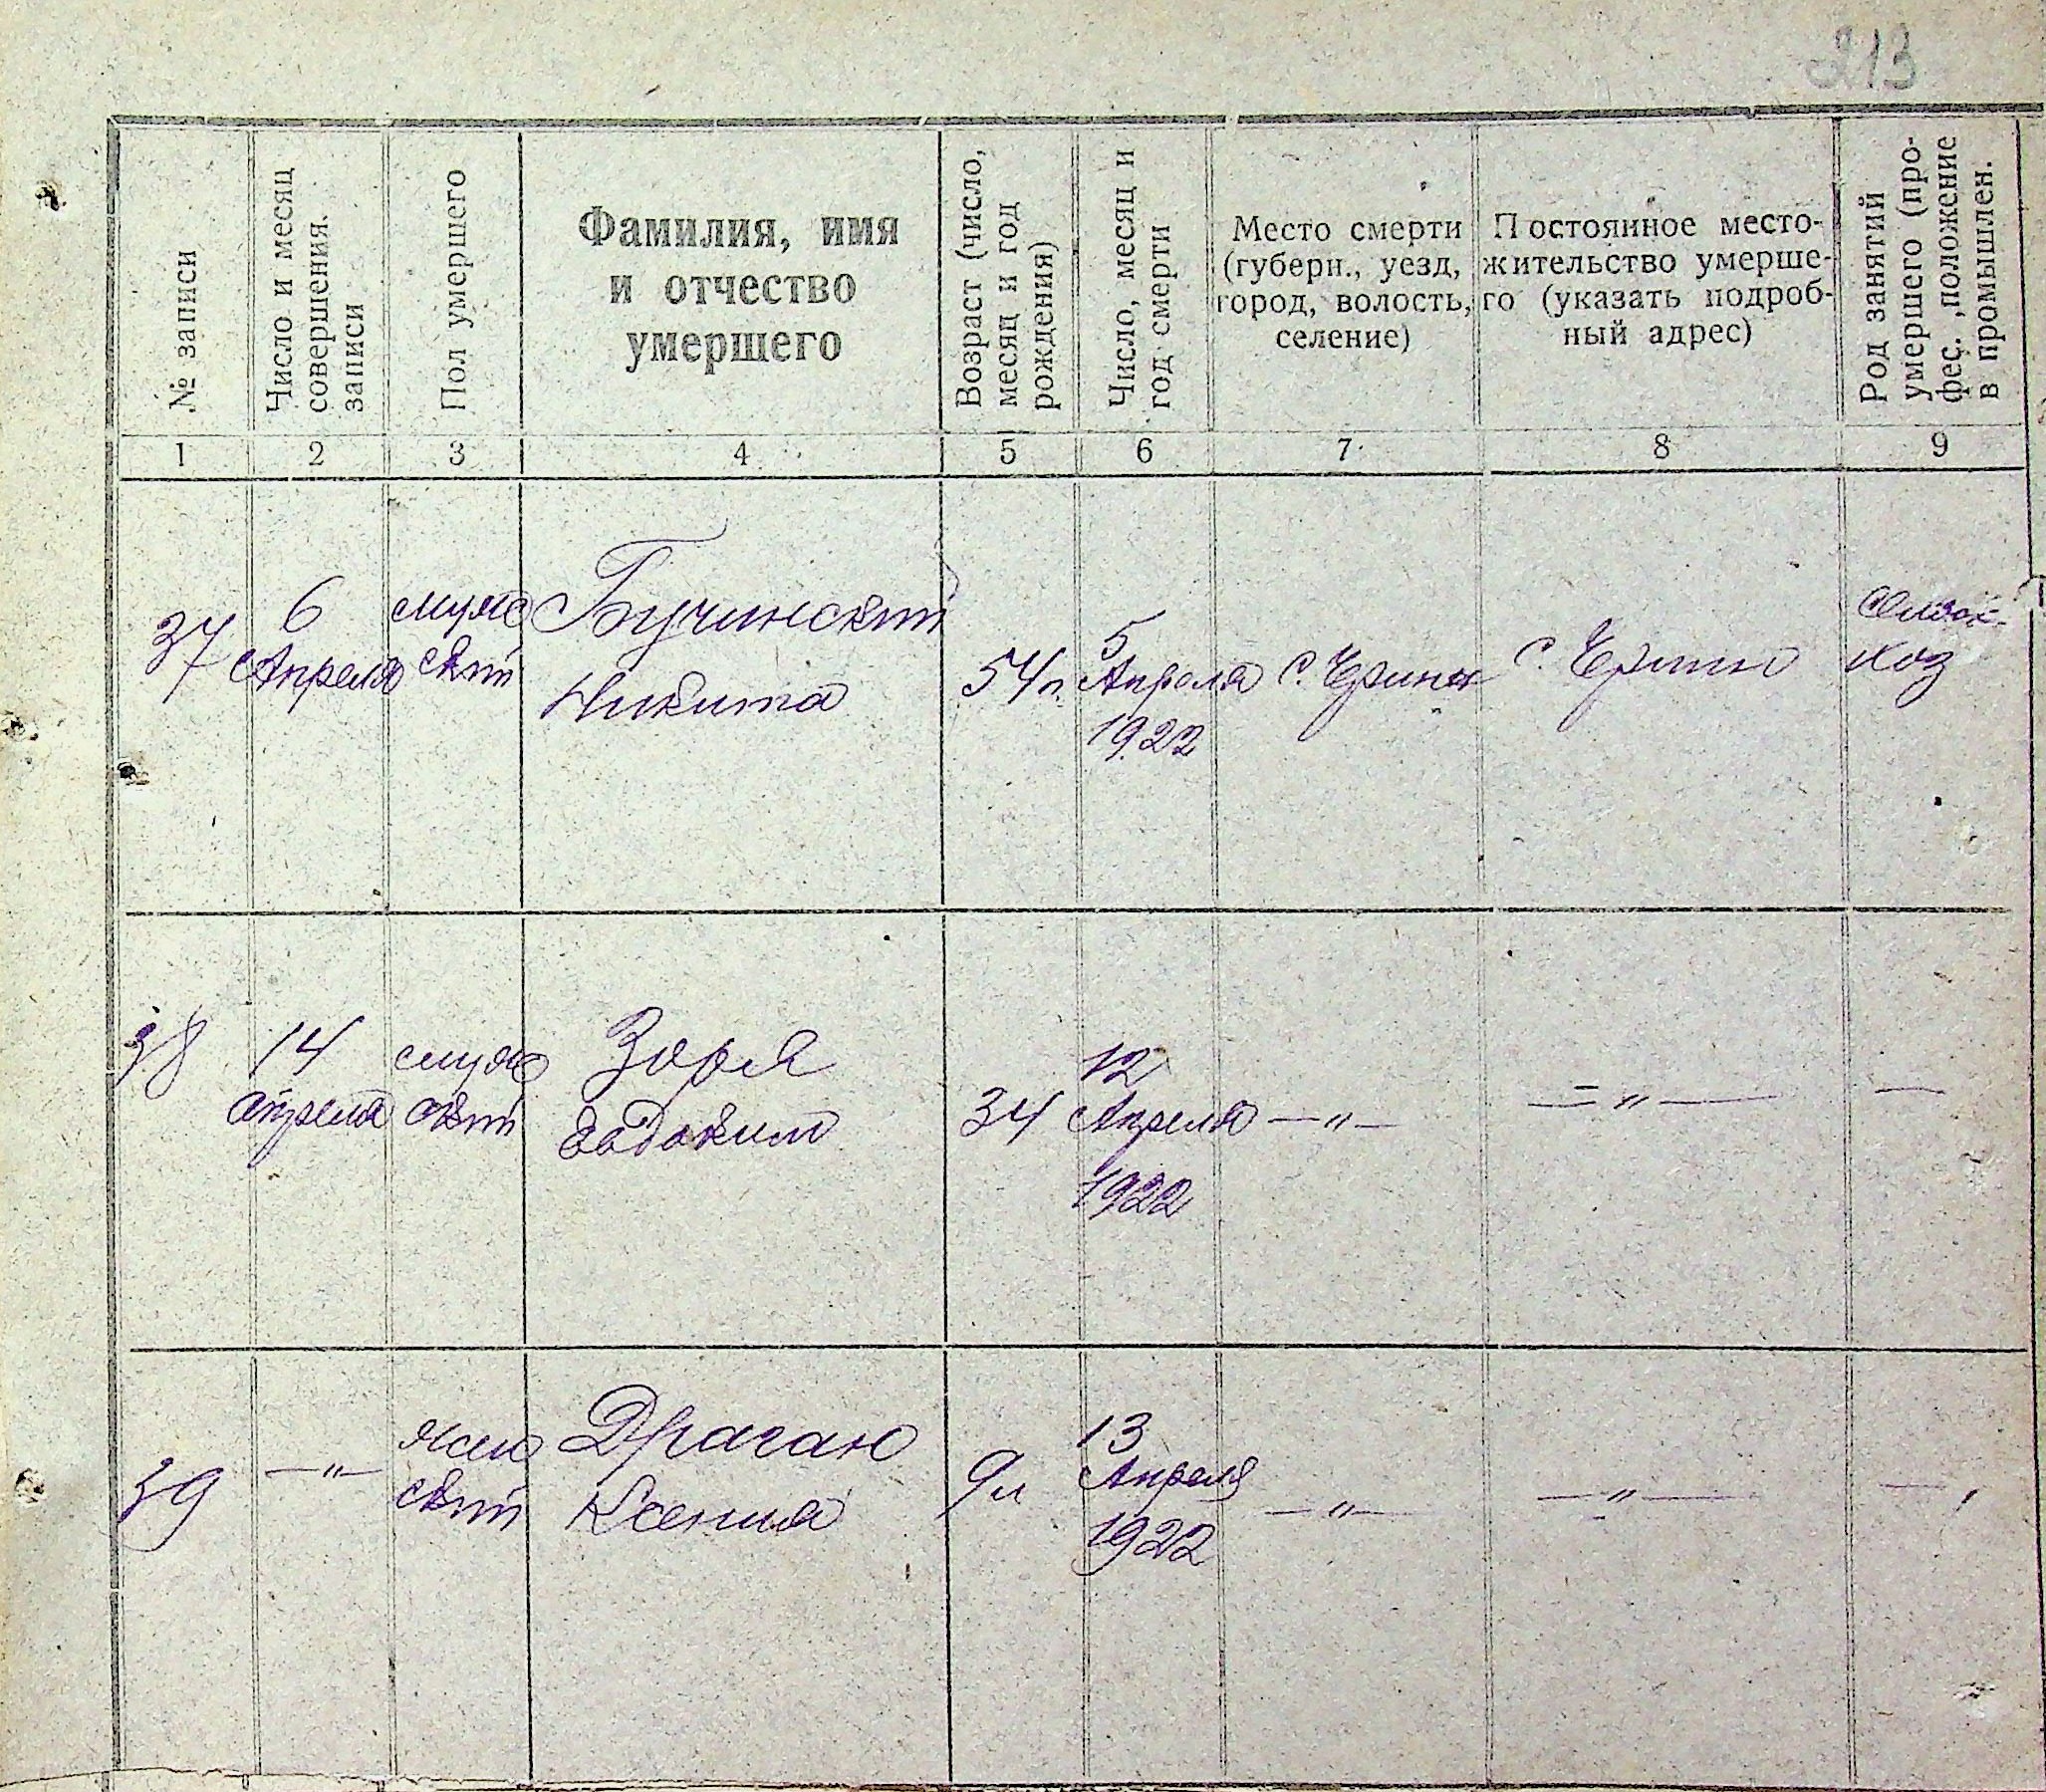 213
№ записи
Число и месяц
совершения.
записи
Пол умершего
Фамилия, имя
и отчество
умершего
Возраст (число,
месяц и год
рождения)
Число, месяц и
год смерти
Место смерти
(губерн., уезд,
город, волость,
селение)
Постоянное место-
жительство умерше-
го (указать подроб-
ный адрес)
Род занятий
умершего (про-
фес., положение
в промышлен.
1 2 3 4 5 6 7 8 9
37
6
Апреля
муж
ский
Бучинский
Никита
54л.
5
Апреля
1922
с.
с.
38
14
Апреля
муж
ский
Зоря
Евдоким
34
12
Апреля
1922
—"—
—"—
—
39
—"—
жен
ский
Драган
Ксения
9л
13
Апреля
1922
—"—
—"—
—